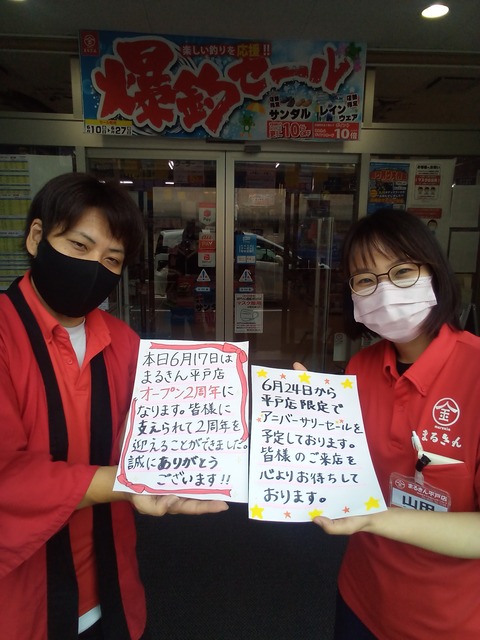 楽しい釣りを応援!!
爆釣セール
サンダル
レイン
ウェア
10倍
10倍
本日6月17日は
まるきん平戸店
オープン2周年に
なります。皆様に
支えられて2周年を
迎えることができました。
誠にありがとう
ございます!!
6月24日から
平戸店限定で
アニバーサリーセールを
予定しております。
皆様のご来店を
心よりお待ちして
おります。
金
まるきん
まるきん平戸店
山田